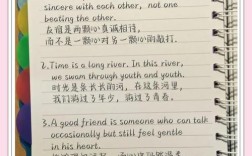 sincere with each other, not one
beating the other.
友谊是两颗心真诚相待,
而不是一颗心对另一颗心的敲打。
2.Time is a long river. In this river,
we swam through youth and youth.
时光是条长长的河,在这条河里,
我们游过了年少,游过了青春。
3.A good friend is someone who can talk
occasionally but still feel gentle
in his heart.